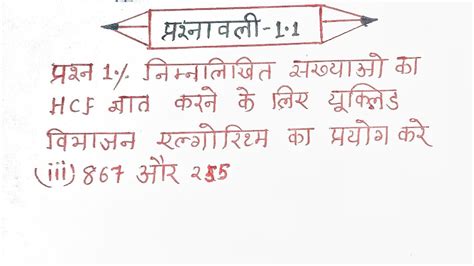 प्रश्नावली-1.1
प्रश्न 1% निम्नलिखित संख्याओ का
HCF ज्ञात करने के लिए यूक्लिड
विभाजन एल्गोरिथ्म का प्रयोग करे
(iii) 867 और 255